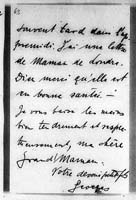 souvent tard dans l'ap
premidi. J'ai une lettre
de Maman de Londres.
Dieu merci qu'elle est
en bonne santé —
Je vous baise les mains
bien tendrement et respec
tueusement, ma chère
Grand'Maman.
Votre devoué petit fils
Georges